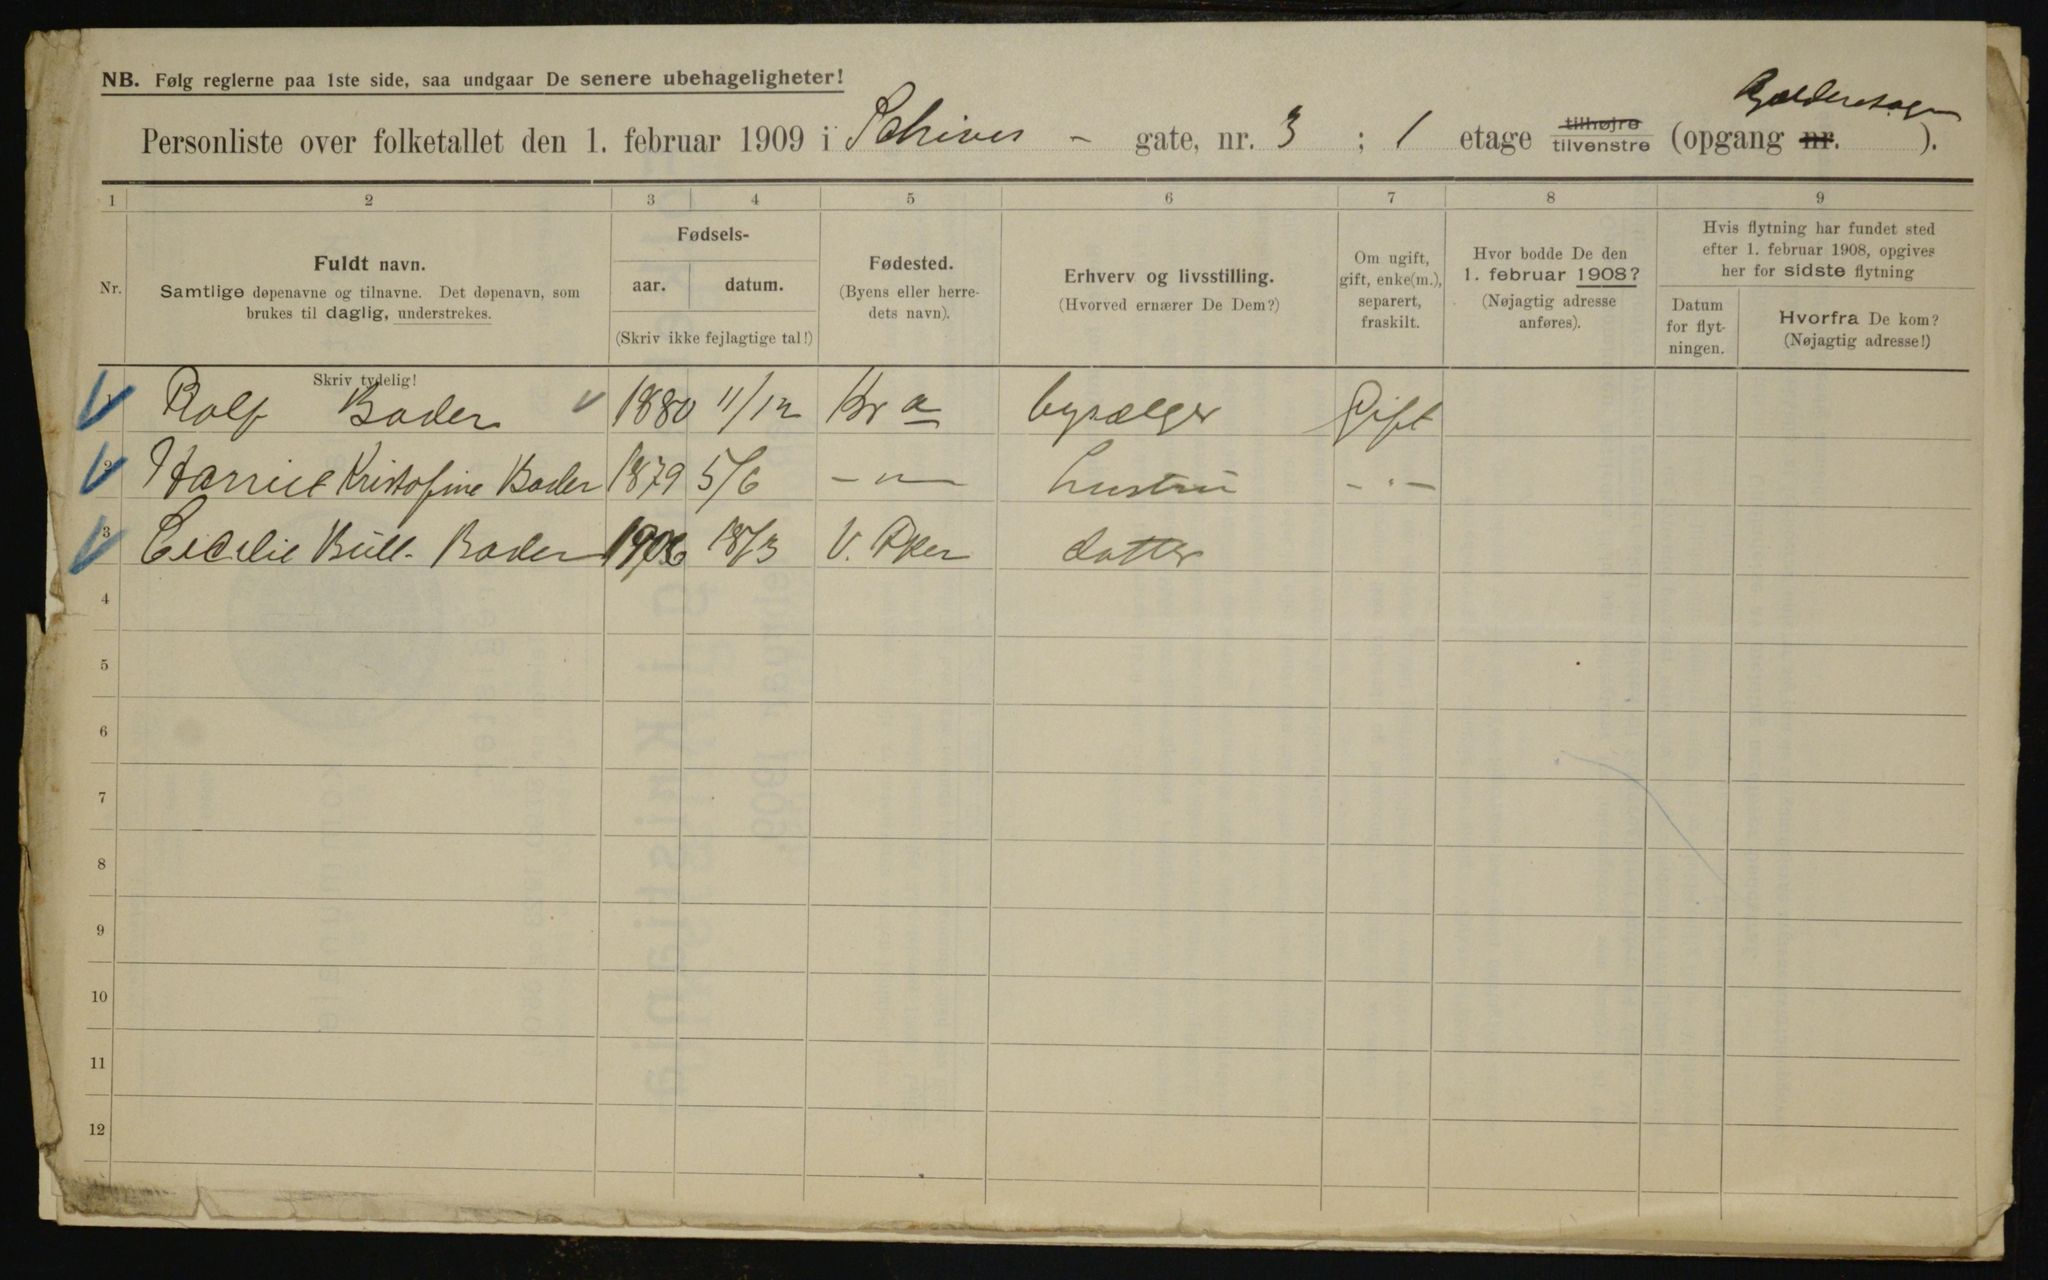 NB. Følg reglerne paa 1ste side, saa undgaar De senere ubehageligheter!
Personliste over folketallet den 1. februar 1909 i Schives - gate, nr. 3 ; 1 etage tilhøjre tilvenstre (opgang nr. ).
1 2 3 4 5 6 7 8 9
Nr.
Fuldt navn.
Samtlige døpenavne og tilnavne. Det døpenavn, som
brukes til daglig, understrekes.
Skriv tydelig!
Fødsels-
aar. datum.
(Skriv ikke fejlagtige tal!)
Fødested.
(Byens eller herre-
dets navn).
Erhverv og livsstilling.
(Hvorved ernærer De Dem?)
Om ugift,
gift, enke(m.),
separert,
fraskilt.
Hvor bodde De den
1. februar 1908?
(Nøjagtig adresse
anføres).
Hvis flytning har fundet sted
efter 1. februar 1908, opgives
her for sidste flytning
Datum
for flyt-
ningen.
Hvorfra De kom?
(Nøjagtig adresse!)
1 Rolf Bader 1880 11/12 Kr a bysælger Gift
2 Harriet Kristofine Bader 1879 5/6 -"- hustru -"-
3 Cecilie Bull- Bader 1906 18/3 V. Aker datter
4
5
6
7
8
9
10
11
12